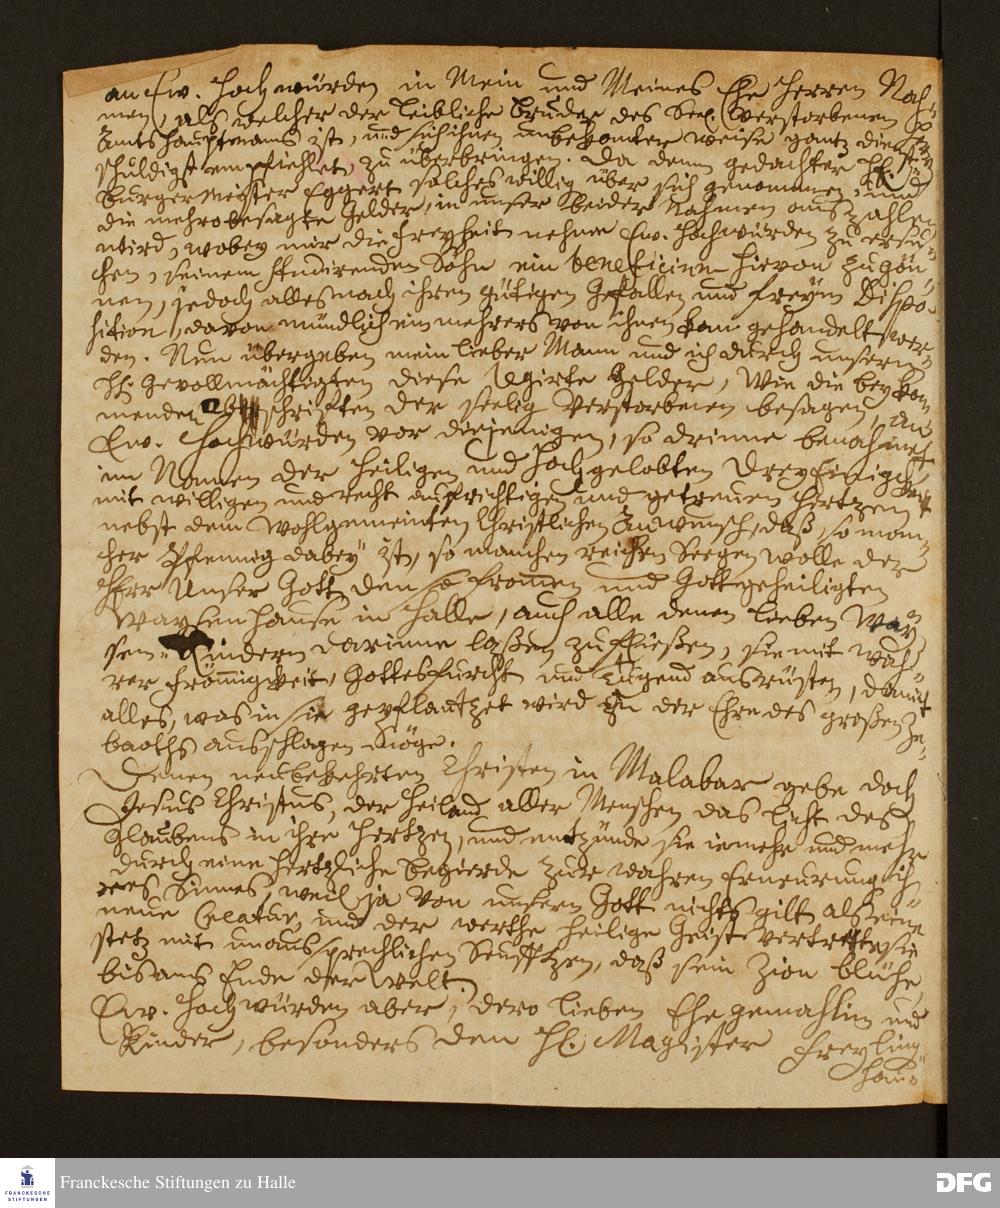 an Ew. Hochwürden in Mein und Meines Ehe Herren Nah=
men, als welcher der leibliche Bruder des Seel. Verstorbenen H
Amtshauptmans ist, und sich ihnen unbekanter weise gantz dienst
schuldigst empfiehlet, zu überbringen. Da denn gedachter H.
Bürgermeister Eggert solches willig über sich genommen, und
die mehrobesagte Gelder, in unser beider Nahmen auszahlen
wird, wobey mir die Freyheit nehme Ew. Hochwürden zu ersu=
chen, seinem studirenden Sohn ein beneficium hievon zu gön=
nen, jedoch alles nach ihren gütigen Gefallen und freyen Dispo=
sition, davon mündlich ein mehrers von ihnen kan gehandelt wer=
den. Nun übergeben mein lieber Mann und ich durch unsern
H. Gevollmächtigten diese legirte Gelder, wie die beykom=
menden schrifften der seelig Verstorbenen besagen, an
Ew. Hochwürden vor diejenigen, so drinne benahmet
im Namen der Heiligen und Hochgelobten DreyEinigkeit
mit willigen und recht aufrichtigen und getreuen Hertzen
nebst dem wohlgemeinten Christlichen Anwunsch, daß, so man=
cher Pfennig dabey ist, so manchen reichen Seegen wolle der
HErr Unser Gott den Fromen und Gott geheiligten
Waysenhause in Halle, auch alle denen lieben Way=
sen=Kindern darinne laßen zufließen, sie mit wah=
rer Fromigkeit, Gottesfurcht und Tugend ausrüsten, damit
alles, was in sie gepflantzet wird zu der Ehre des großen Ze=
baoths ausschlagen möge.
Denen neubekehrten Christen in Malabar gebe doch
Jesus Christus, der Heiland aller Menschen das Licht des
Glaubens in ihre Hertzen, und entzünde sie iemehr und mehr
durch eine hertzliche begierde zur wahren Erneurung ih=
res Sinnes, weil ja von unsern Gott nichts gilt als eine
neue Creatur, und der werthe heilige Geist vertrette sie
stets mit unaussprechlichen Seufftzen, daß sein Zion blühe
bis ans Ende der Welt.
Ew. Hochwürden aber, dero lieben Ehegemahlin und
Kinder, besonders den H. Magister Freyling=
hau=
FRANCKESCHE
STIFTUNGEN
Franckesche Stiftungen zu Halle
DFG